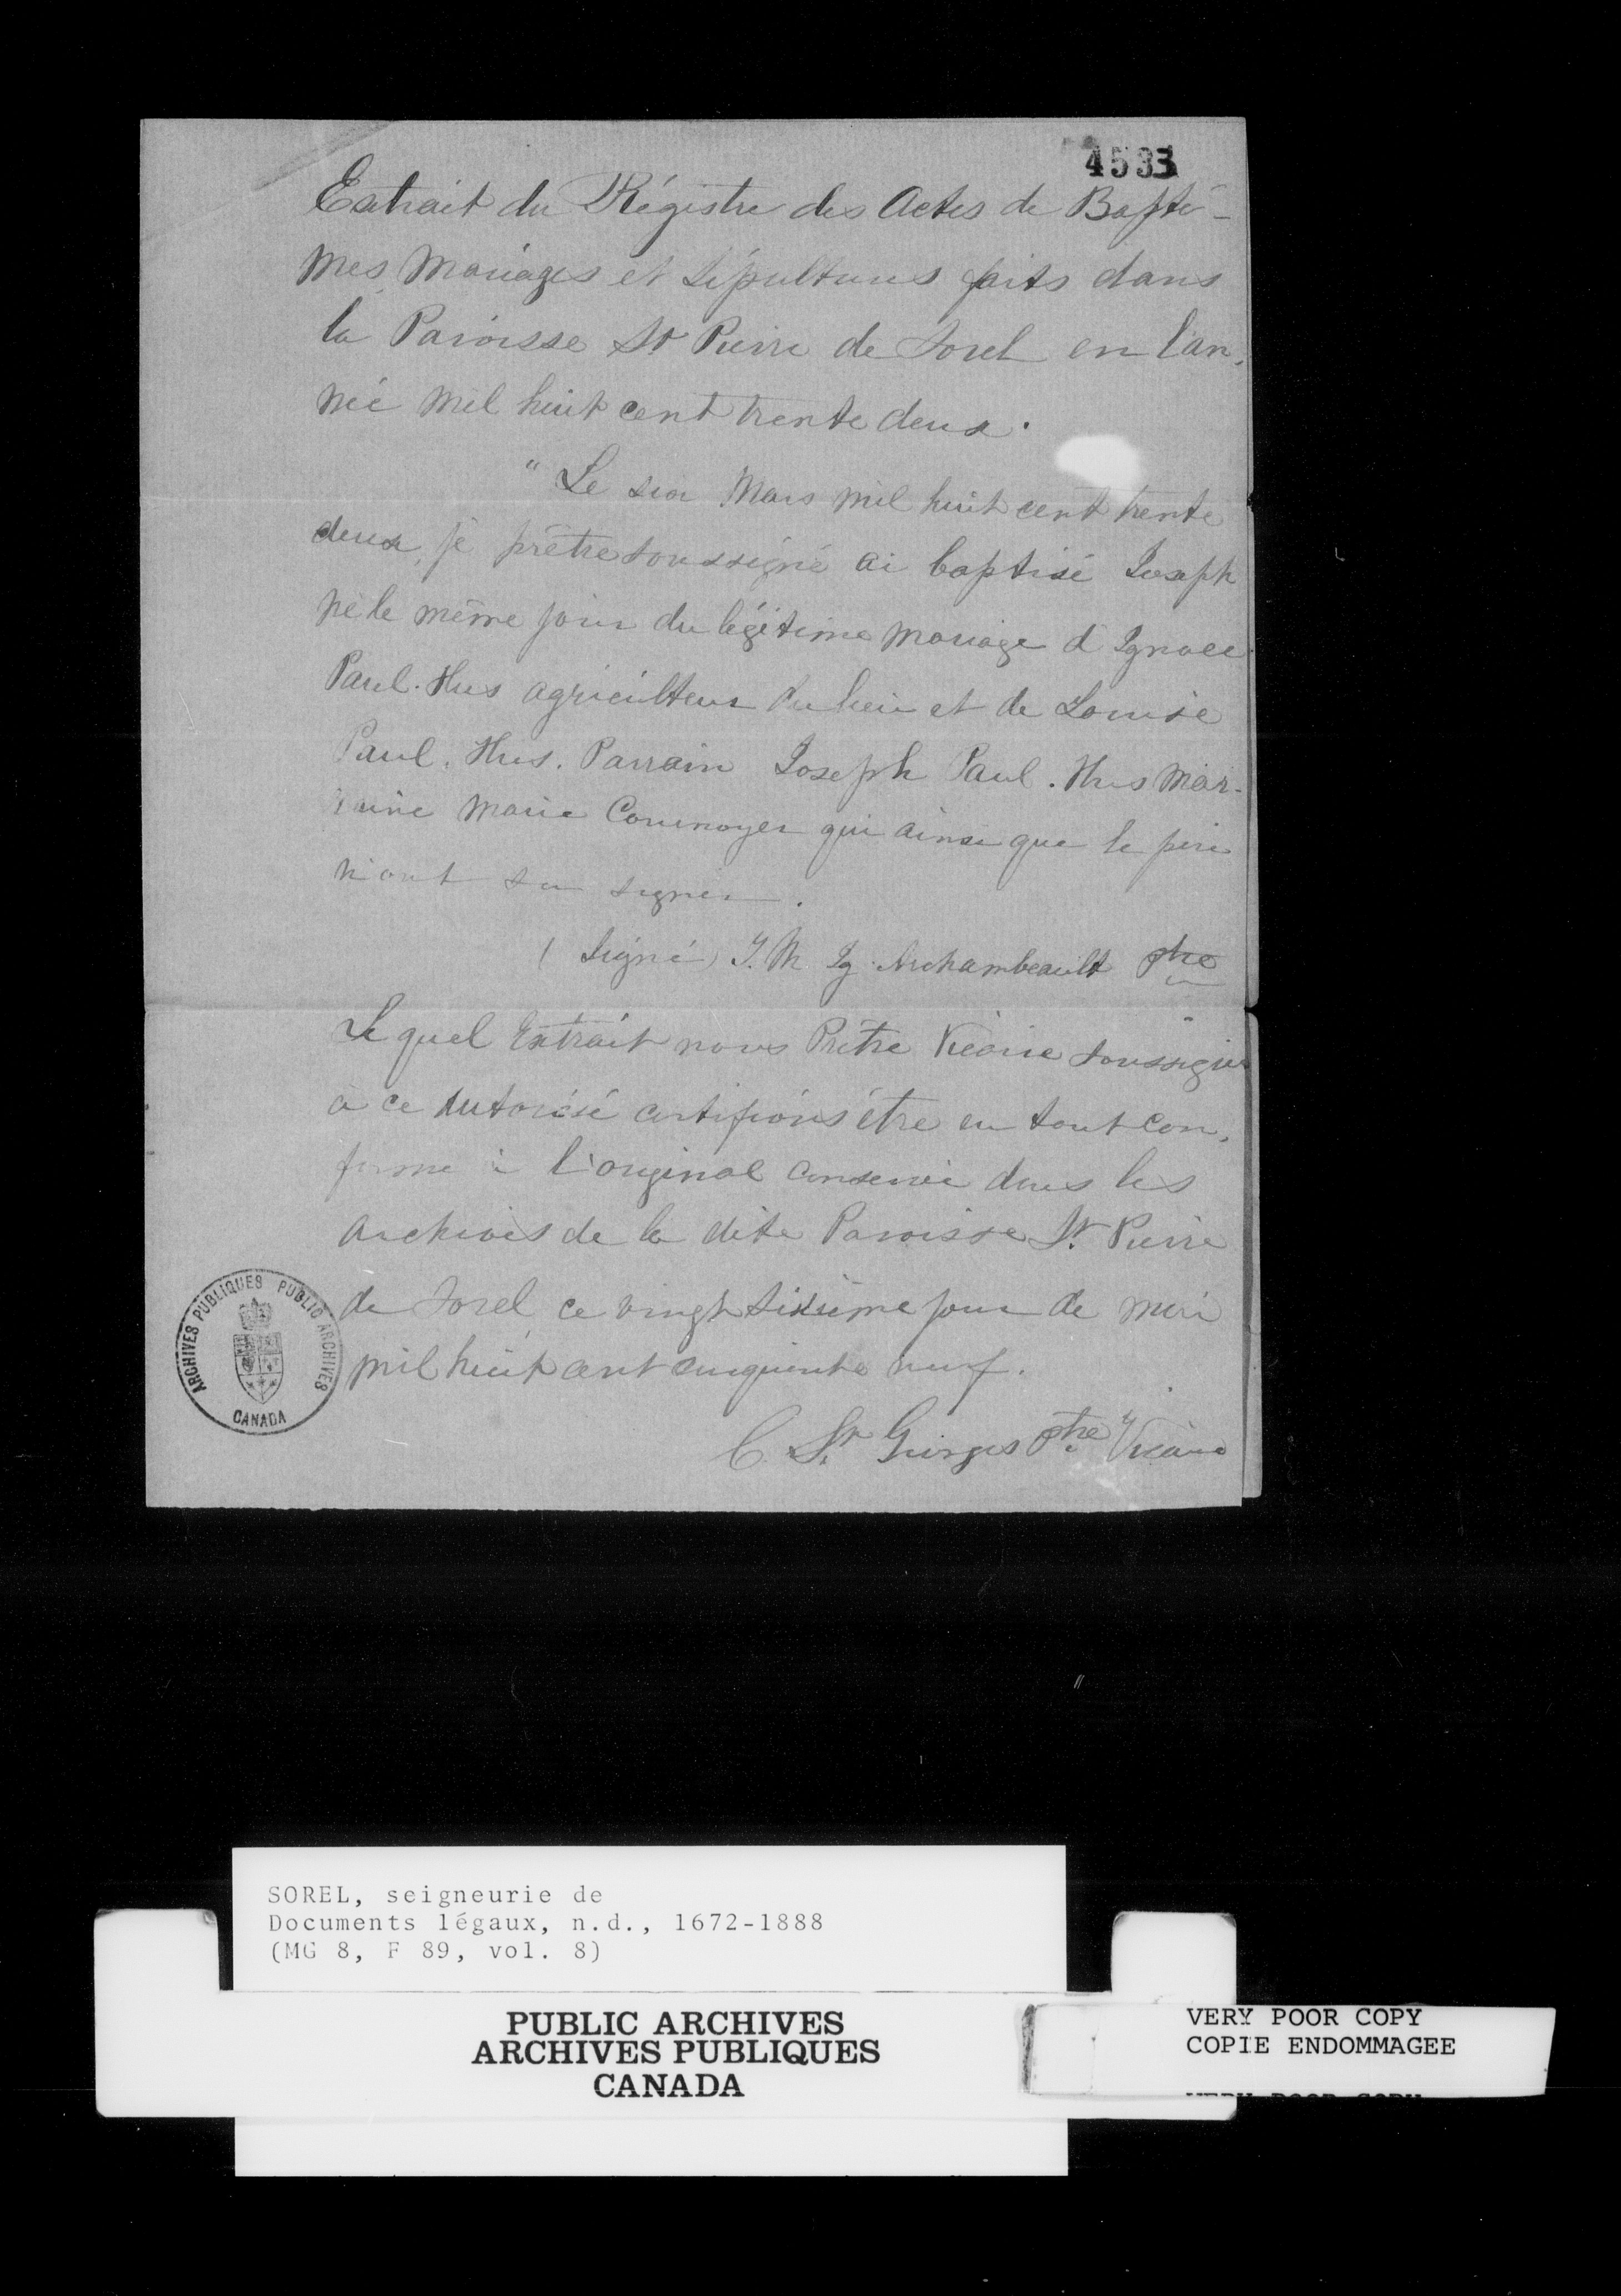 4533
Extrait du Régistre des Actes de Baptê-
mes, Mariages et Sépultures faits dans
la Paroisse St Pierre de Sorel en l'an,
née mil huit cent trente deux.
"Le six Mars mil huit cent trente
deux, je prêtre soussigné ai baptisé Joseph
né le même jour du légitime mariage d'Ignace
Paul. Hus agriculteur du lieu et de Louise
Paul. Hus. Parrain Joseph Paul. Hus Mar-
raine Marie Cournoyer qui ainsi que le père
n'ont su signer.
(Signé) J. M. Ig. Archambeault Ptre
Le quel Extrait nous Prêtre Vicaire soussigné
à ce autorisé certifions être en tout con,
forme à l'original conservé dans les
archives de la dite Paroisse St. Pierre
de Sorel ce vingt sixième jour de mai
mil huit cent cinquante neuf.
C. St Georges Ptre Vicaire
ARCHIVES PUBLIQUES PUBLIC ARCHIVES
CANADA
SOREL, seigneurie de
Documents légaux, n.d., 1672-1888
(MG 8, F 89, vol. 8)
PUBLIC ARCHIVES
ARCHIVES PUBLIQUES
CANADA
VERY POOR COPY
COPIE ENDOMMAGEE
VERY POOR COPY